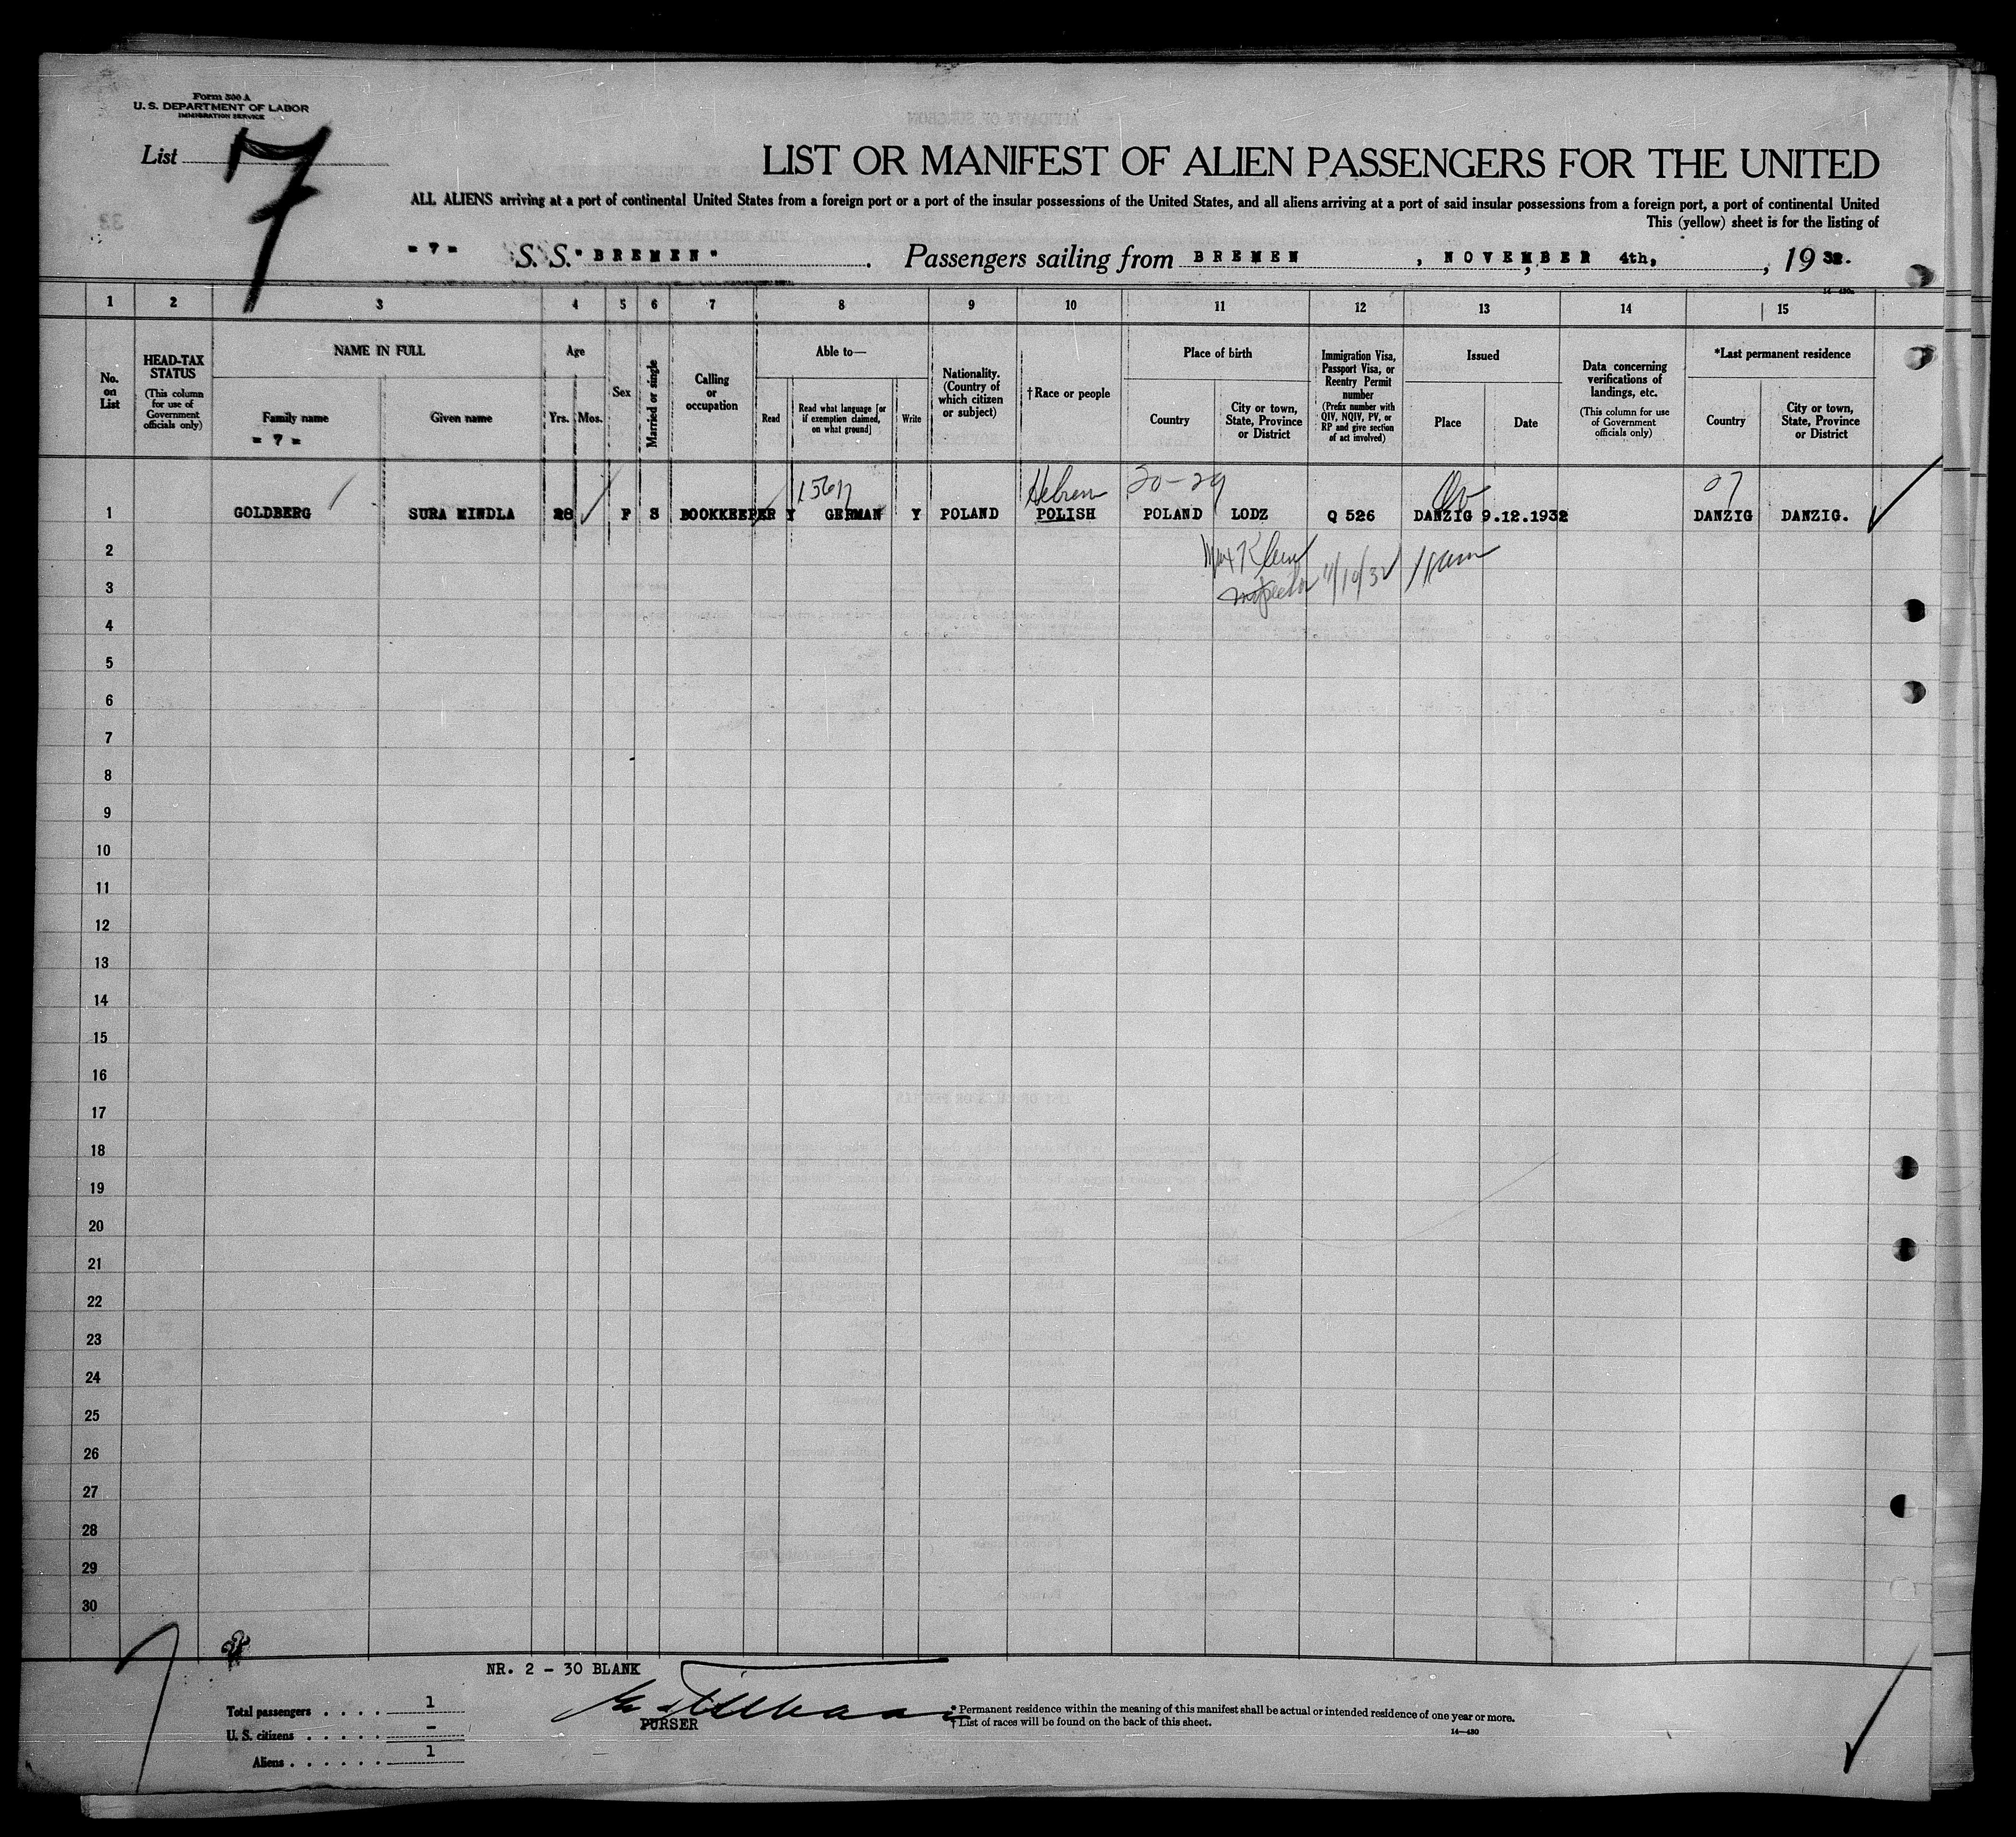 Form 500 A
U. S. DEPARTMENT OF LABOR
IMMIGRATION SERVICE
List 7
LIST OR MANIFEST OF ALIEN PASSENGERS FOR THE UNITED
ALL ALIENS arriving at a port of continental United States from a foreign port or a port of the insular possessions of the United States, and all aliens arriving at a port of said insular possessions from a foreign port, a port of continental United
This (yellow) sheet is for the listing of
= 7 = S. S. "BREMEN". Passengers sailing from BREMEN, NOVEMBER 4th, 1932.
1 2 3 4 5 6 7 8 9 10 11 12 13 14 15
No. on List
HEAD-TAX STATUS
(This column for use of Government officials only)
NAME IN FULL
Family name
= 7 =
Given name
Age
Yrs. Mos.
Sex
Married or single
Calling or occupation
Able to—
Read
Read what language [or if exemption claimed, on what ground]
Write
Nationality. (Country of which citizen or subject)
†Race or people
Place of birth
Country
City or town, State, Province or District
Immigration Visa, Passport Visa, or Reentry Permit number
(Prefix number with QIV, NQIV, PV, or RP and give section of act involved)
Issued
Place
Date
Data concerning verifications of landings, etc.
(This column for use of Government officials only)
*Last permanent residence
Country
City or town, State, Province or District
Hebrew 20-29 27
1 GOLDBERG SURA MINDLA 28 F S BOOKKEEPER Y GERMAN Y POLAND POLISH POLAND LODZ Q 526 DANZIG 9.12.1932 DANZIG DANZIG.
2
Max Klein
3
Inspector 11/10/32
4
5
6
7
8
9
10
11
12
13
14
15
16
17
18
19
20
21
22
23
24
25
26
27
28
29
30
NR. 2 - 30 BLANK
Total passengers . . . . 1
U. S. citizens . . . . . –
Aliens . . . . . . 1
PURSER
* Permanent residence within the meaning of this manifest shall be actual or intended residence of one year or more.
† List of races will be found on the back of this sheet.
14—430